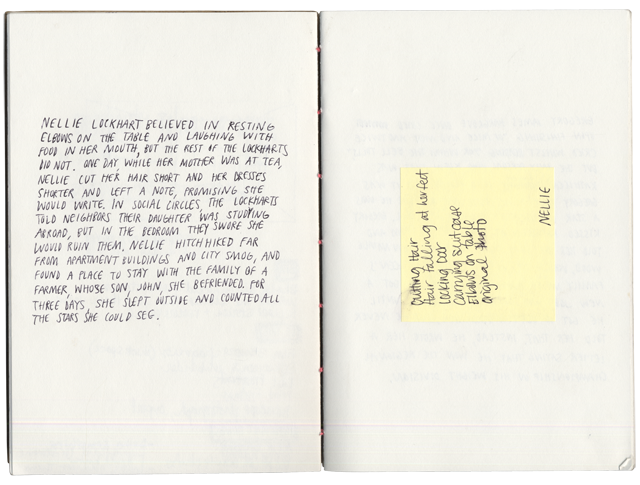 NELLIE LOCKHART BELIEVED IN RESTING
ELBOWS ON THE TABLE AND LAUGHING WITH
FOOD IN HER MOUTH, BUT THE REST OF THE LOCKHARTS
DID NOT. ONE DAY, WHILE HER MOTHER WAS AT TEA,
NELLIE CUT HER HAIR SHORT AND HER DRESSES
SHORTER AND LEFT A NOTE, PROMISING SHE
WOULD WRITE. IN SOCIAL CIRCLES, THE LOCKHARTS
TOLD NEIGHBORS THEIR DAUGHTER WAS STUDYING
ABROAD, BUT IN THE BEDROOM THEY SWORE SHE
WOULD RUIN THEM. NELLIE HITCHHIKED FAR
FROM APARTMENT BUILDINGS AND CITY SMOG, AND
FOUND A PLACE TO STAY WITH THE FAMILY OF A
FARMER, WHOSE SON, JOHN, SHE BEFRIENDED. FOR
THREE DAYS, SHE SLEPT OUTSIDE AND COUNTED ALL
THE STARS SHE COULD SEE.
Cutting Hair
Hair falling at her feet
Locking Door
Carrying suitcase
Elbows on table
Original Photo
NELLIE